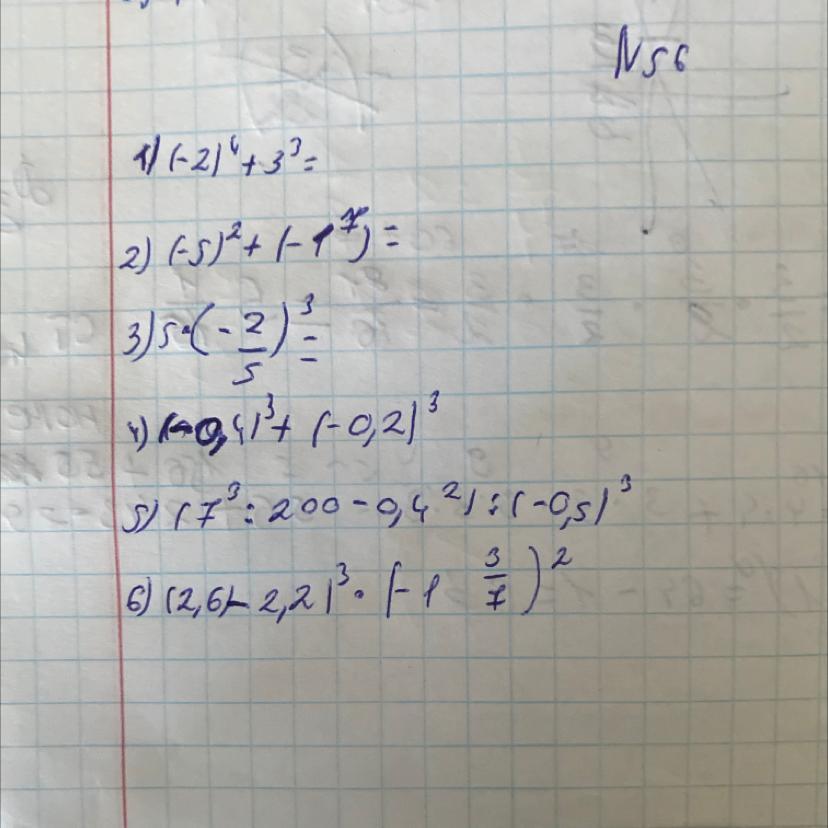 N56
1) (-2)⁴ + 3³ =
2) (-5)² + (-1⁷) =
3) 5 · (-2/5)³ =
4) (-0,4)³ + (-0,2)³
5) (7³ : 200 - 0,4²) : (-0,5)³
6) (2,6 - 2,2)³ · (-1 3/7)²